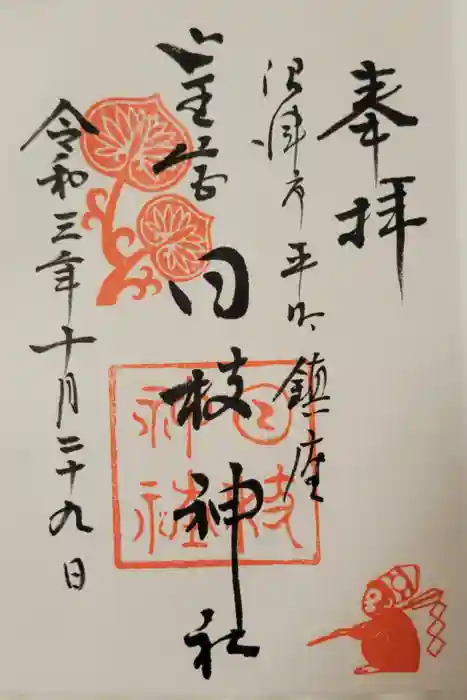 奉拝
沼津市平町鎮座
日枝神社
令和三年十月二十九日
日枝
神社